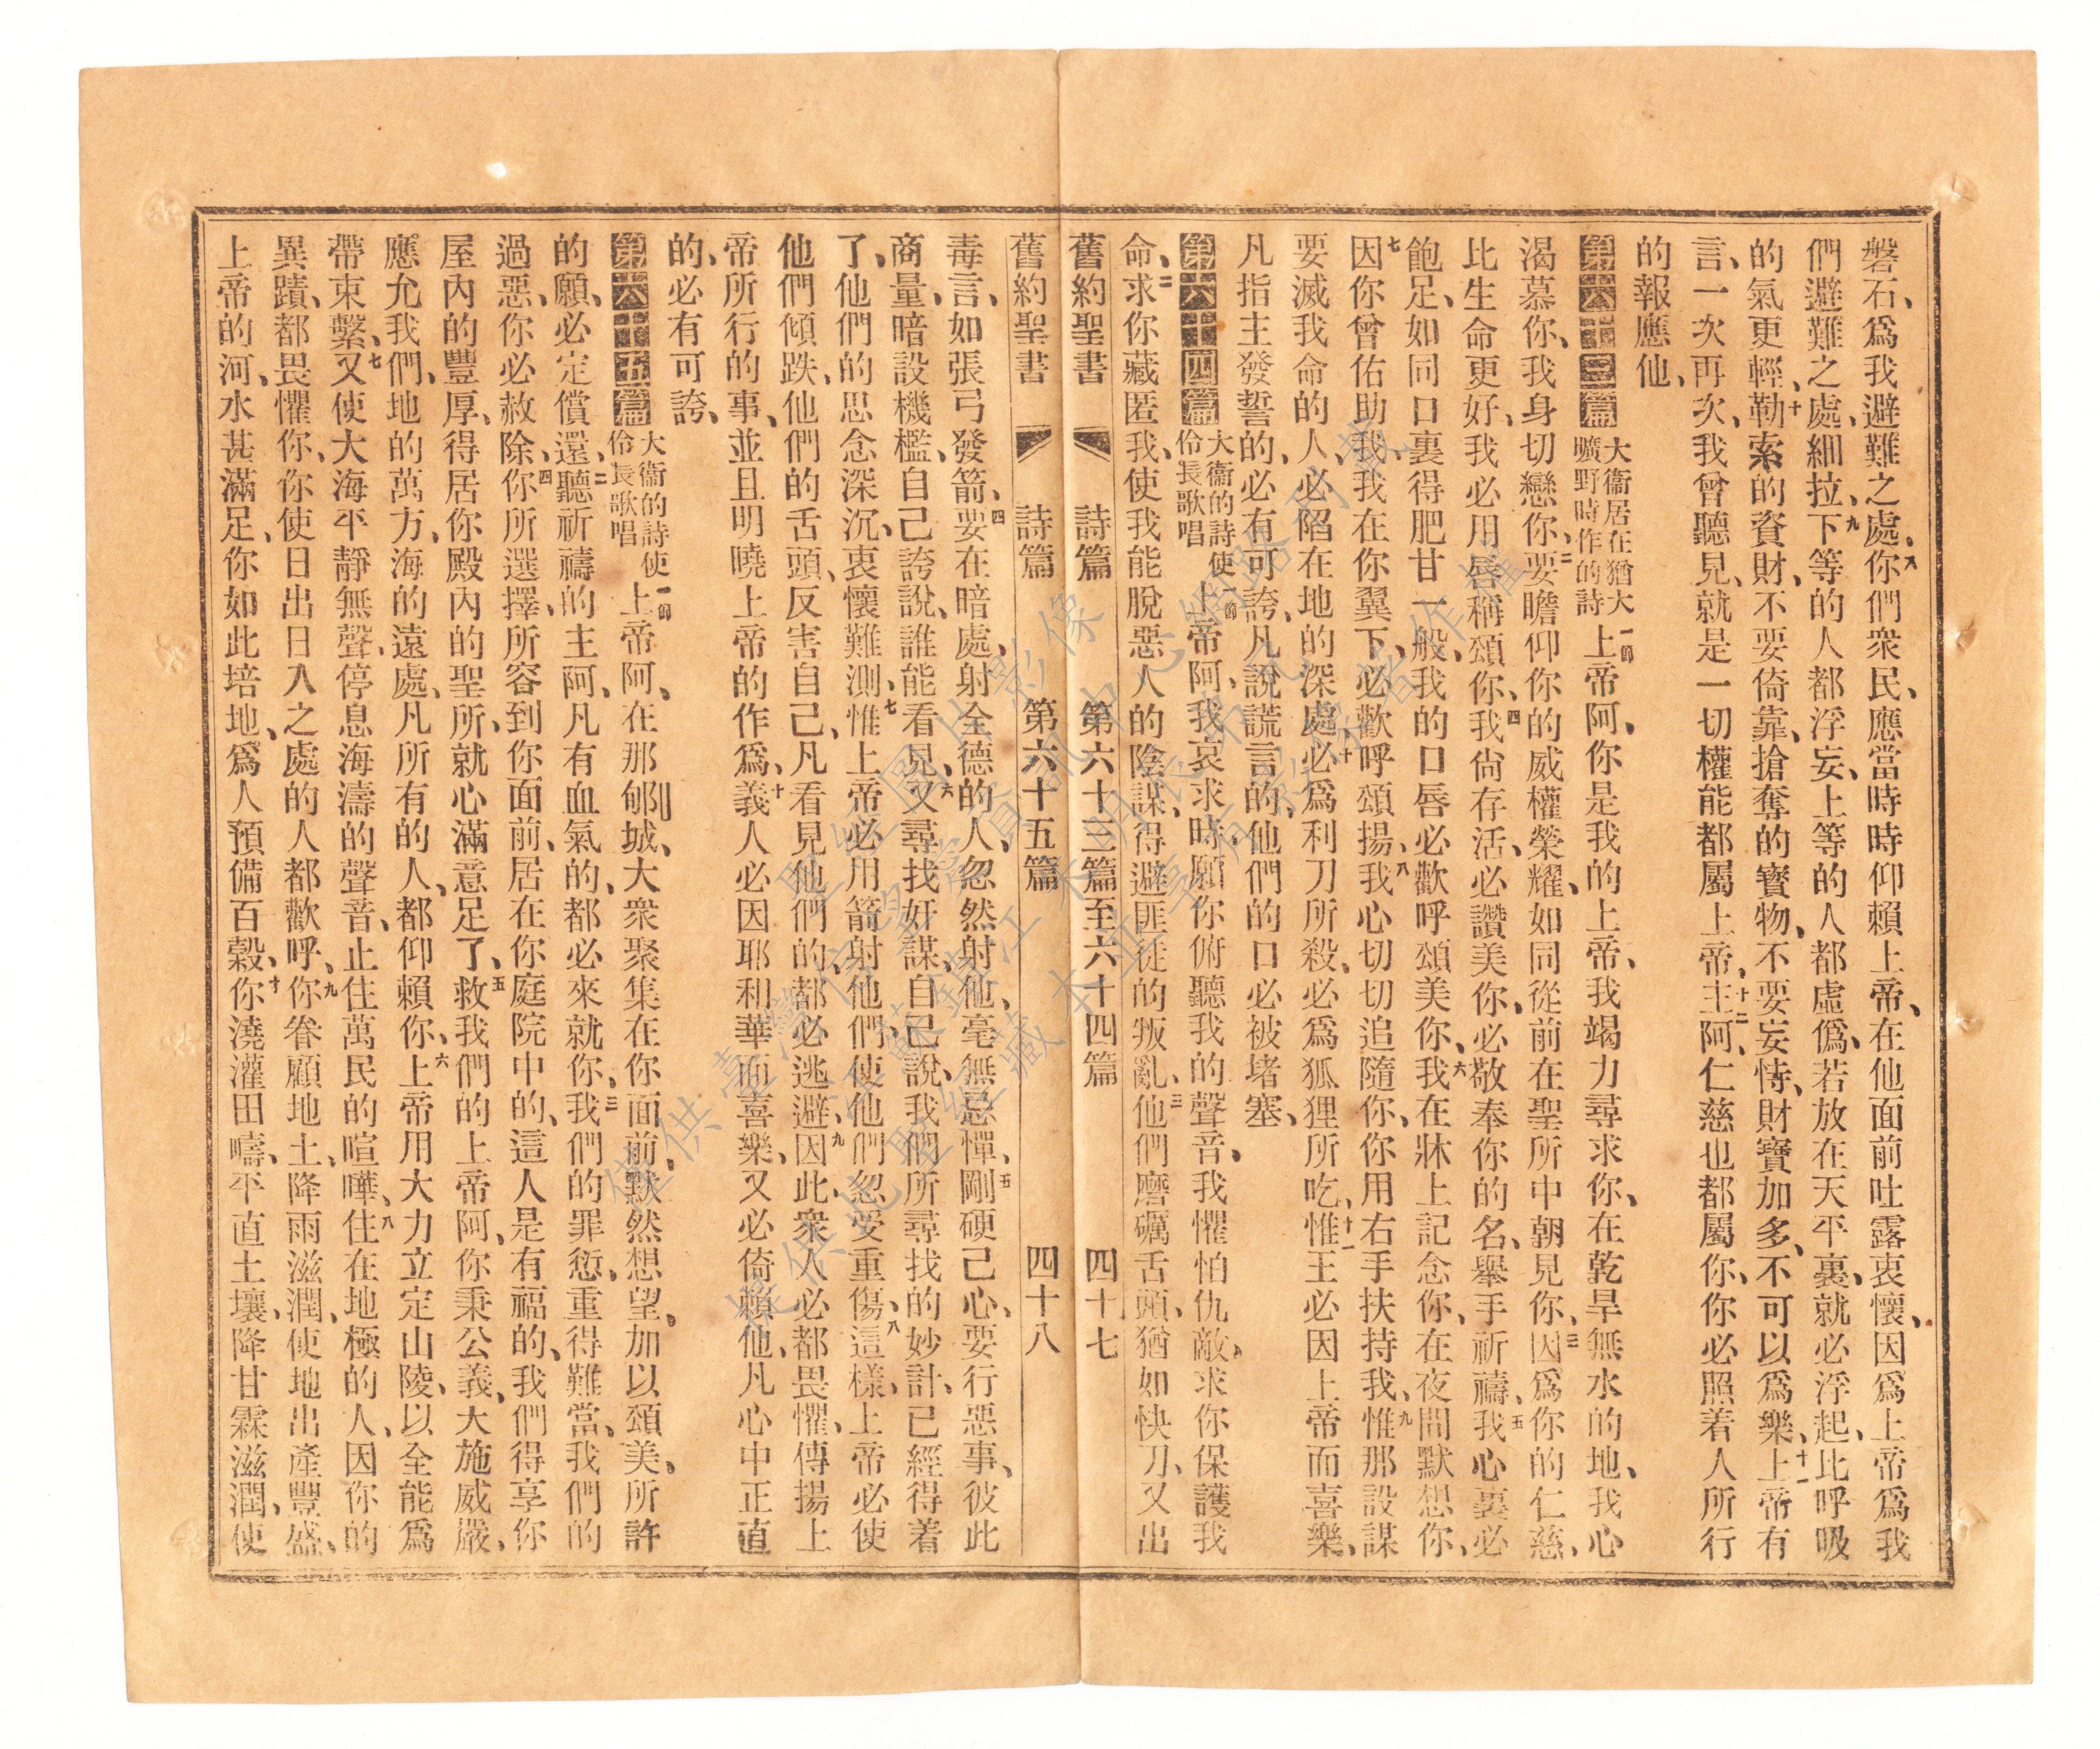 磐石、爲我避難之處、八你們衆民、應當時時仰賴上帝、在他面前吐露衷懷、因爲上帝爲我
們避難之處、細拉、九下等的人都浮妄、上等的人都虛僞、若放在天平裏、就必浮起、比呼吸
的氣更輕、十勒索的資財、不要倚靠、搶奪的寶物、不要妄恃、財寶加多、不可以爲樂、十一上帝有
言、一次再次、我曾聽見、就是一切權能都屬上帝、十二主阿、仁慈也都屬你、你必照着人所行
的報應他、
第六十三篇 大衞居在猶大曠野時作的詩 一節上帝阿、你是我的上帝、我竭力尋求你、在乾旱無水的地、我心
渴慕你、我身切戀你、二要瞻仰你的威權榮耀、如同從前在聖所中朝見你、三因爲你的仁慈、
比生命更好、我必用唇稱頌你、四我尙存活、必讚美你、必敬奉你的名、舉手祈禱、五我心裏必
飽足、如同口裏得肥甘一般、我的口唇必歡呼頌美你、六我在牀上記念你、在夜間默想你、
七因你曾佑助我、我在你翼下、必歡呼頌揚、八我心切切追隨你、你用右手扶持我、九惟那設謀
要滅我命的人、必陷在地的深處、十必爲利刀所殺、必爲狐狸所吃、十一惟王必因上帝而喜樂、
凡指主發誓的、必有可誇、凡說謊言的、他們的口必被堵塞、
第六十四篇 大衞的詩使伶長歌唱 一節上帝阿、我哀求時、願你俯聽我的聲音、我懼怕仇敵、求你保護我
命、二求你藏匿我、使我能脫惡人的陰謀、得避匪徒的叛亂、三他們磨礪舌頭、猶如快刀、又出
舊約聖書 詩篇 第六十三篇至六十四篇 四十七
舊約聖書 詩篇 第六十五篇 四十八
毒言、如張弓發箭、四要在暗處、射全德的人、忽然射他、毫無忌憚、五剛硬己心、要行惡事、彼此
商量、暗設機檻、自己誇說、誰能看見、六又尋找奸謀、自己說、我們所尋找的妙計、已經得着
了、他們的思念深沉、衷懷難測、七惟上帝必用箭射他們、使他們忽受重傷、八這樣、上帝必使
他們傾跌、他們的舌頭、反害自己、凡看見他們的、都必逃避、九因此、衆人必都畏懼、傳揚上
帝所行的事、並且明曉上帝的作爲、十義人必因耶和華而喜樂、又必倚賴他、凡心中正直
的、必有可誇、
第六十五篇 大衞的詩使伶長歌唱 一節上帝阿、在那郇城、大衆聚集在你面前、默然想望、加以頌美、所許
的願、必定償還、二聽祈禱的主阿、凡有血氣的、都必來就你、三我們的罪愆、重得難當、我們的
過惡、你必赦除、四你所選擇、所容到你面前、居在你庭院中的、這人是有福的、我們得享你
屋內的豐厚、得居你殿內的聖所、就心滿意足了、五救我們的上帝阿、你秉公義、大施威嚴、
應允我們、地的萬方、海的遠處、凡所有的人、都仰賴你、六上帝用大力立定山陵、以全能爲
帶束繫、七又使大海平靜無聲、停息海濤的聲音、止住萬民的喧嘩、八住在地極的人、因你的
異蹟、都畏懼你、你使日出日入之處的人都歡呼、九你眷顧地土、降雨滋潤、使地出產豐盛、
上帝的河、水甚滿足、你如此培地、爲人預備百穀、十你澆灌田疇、平直土壤、降甘霖滋潤、使